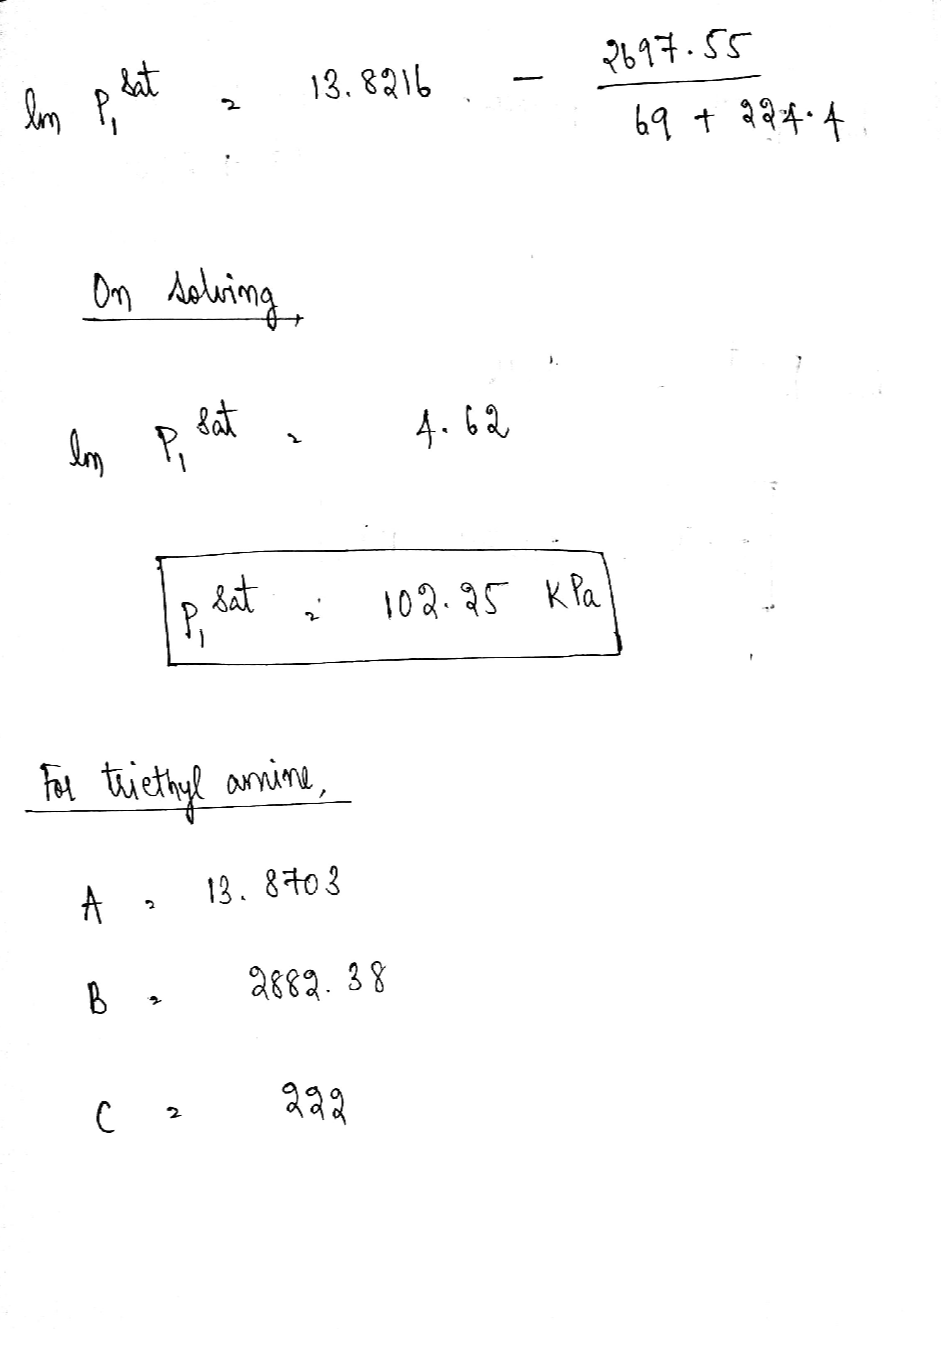 ln P₁ˢᵃᵗ = 13.8216 - 2697.55 / 69 + 224.4
On solving,
ln P₁ˢᵃᵗ = 4.62
P₁ˢᵃᵗ = 102.25 KPa
For triethyl amine,
A = 13.8703
B = 2882.38
C = 222